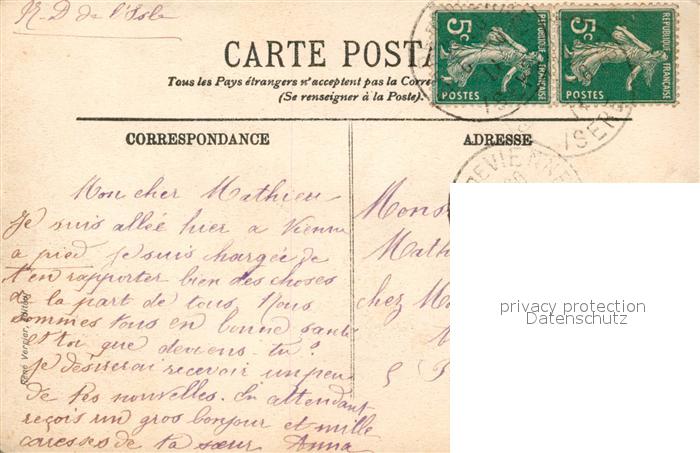 N-D de l'Isle
CARTE POSTA
Tous les Pays étrangers n'acceptent pas la Corre
(Se renseigner à la Poste).
5c REPUBLIQUE FRANÇAISE POSTES
5c REPUBLIQUE FRANÇAISE POSTES
CORRESPONDANCE
ADRESSE
Mon cher Mathieu
Je suis allée hier a Vienne
a pied je suis chargée de
t'en rapporter bien des choses
de la part de tous, Nous
sommes tous en bonne santé
et toi que deviens-tu?
Je désirerai recevoir un peu
de tes nouvelles. En attendant
reçois un gros bonjour et mille
caresses de ta sœur Anna
Mons
Math
chez M
5
René Vergier, Editeur
ISER
DE VIENNE
privacy protection
Datenschutz